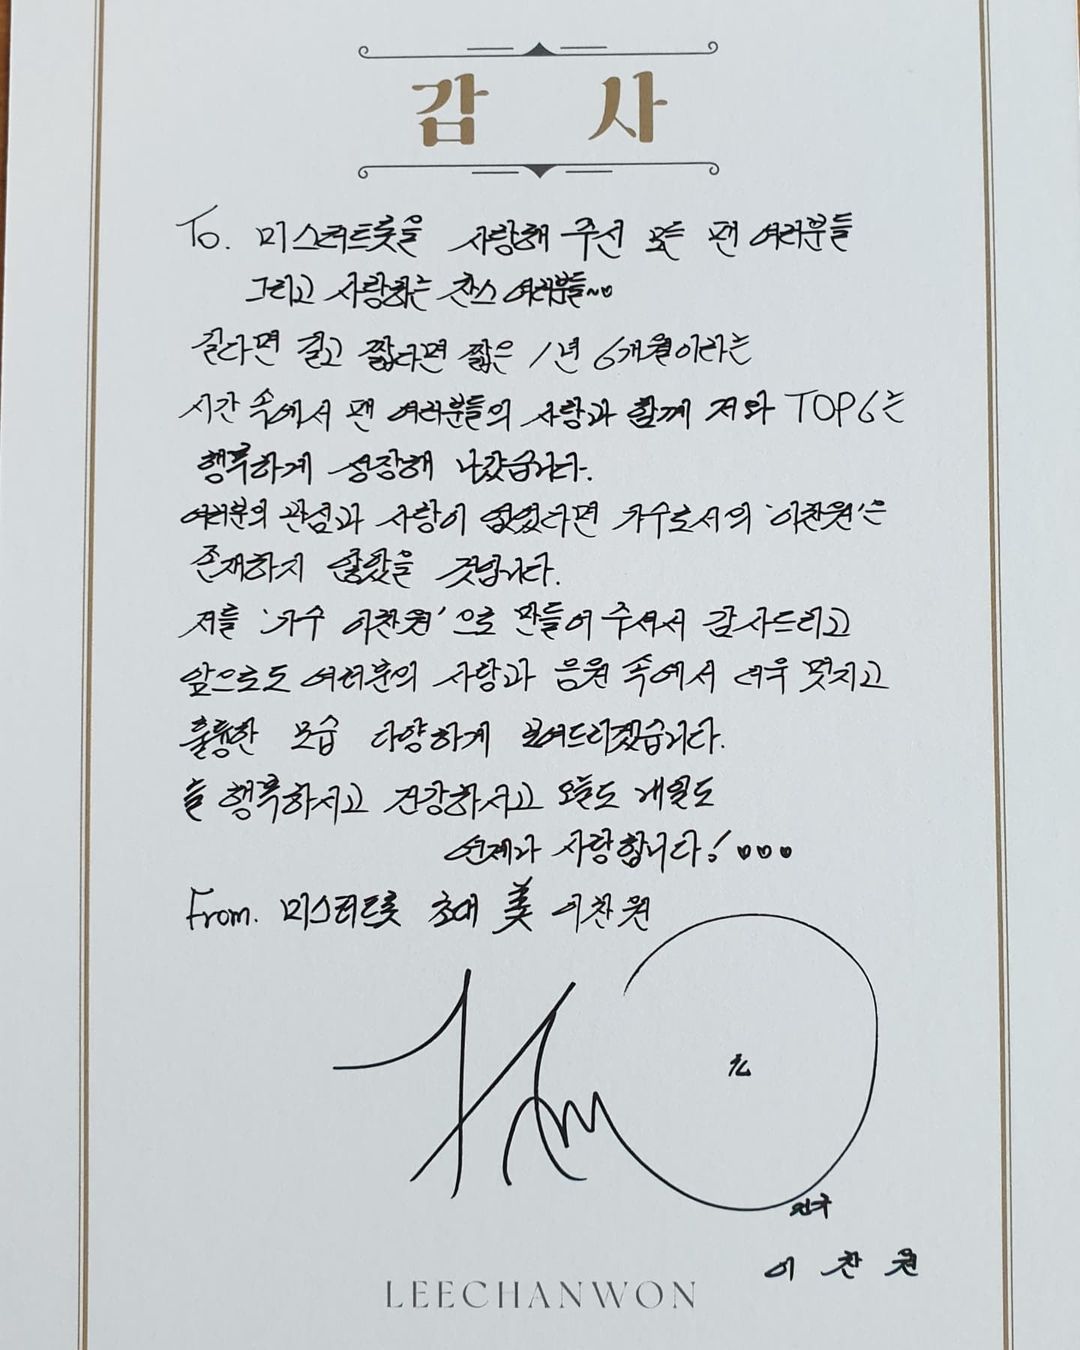 감 사
To. 미스터트롯을 사랑해 주신 모든 팬 여러분들
그리고 사랑하는 찬스 여러분들~♡
길다면 길고 짧다면 짧은 1년 6개월이라는
시간 속에서 팬 여러분들의 사랑과 함께 저와 TOP6는
행복하게 성장해 나갔습니다.
여러분의 관심과 사랑이 없었다면 가수로서의 '이찬원'은
존재하지 않았을 것입니다.
저를 '가수 이찬원'으로 만들어 주셔서 감사드리고
앞으로도 여러분의 사랑과 응원 속에서 더욱 멋지고
훌륭한 모습 다양하게 보여드리겠습니다.
늘 행복하시고 건강하시고 오늘도 내일도
언제나 사랑합니다! ♡♡♡
From. 미스터트롯 초대 美 이찬원
이 찬 원
LEECHANWON